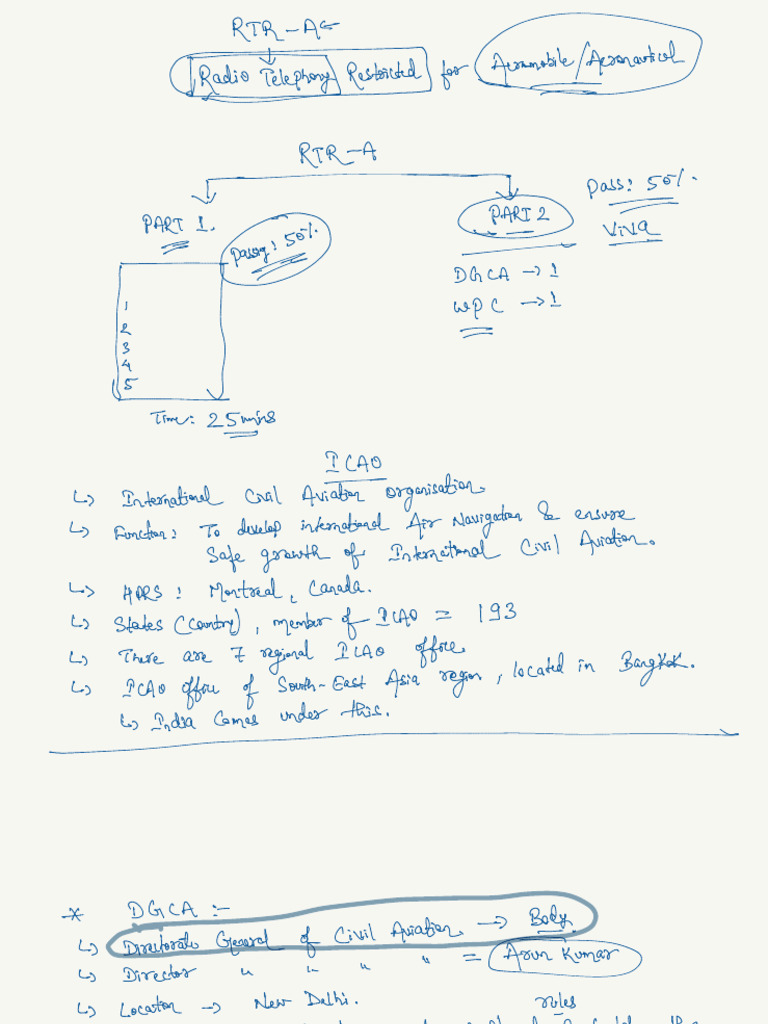 RTR-A
Radio Telephony Restricted for Aeromobile/Aeronautical
RTR-A
PART 1.
Passg: 50%
1
2
3
4
5
Time: 25 mins
PART 2
Pass: 50%.
ViVa
DGCA → 1
WPC → 1
ICAO
↳ International Civil Aviation Organisation.
↳ Function: To develop international Air Navigation & ensure
Safe growth of International Civil Aviation.
↳ HQRS: Montreal, Canada.
↳ States (Country), member of ICAO = 193
↳ There are 7 regional ICAO office.
↳ ICAO office of South-East Asia region, located in Bangkok.
↳ India comes under this.
* DGCA :-
↳ Directorate General of Civil Aviation → Body
↳ Director " " " " = Arun Kumar
↳ Location → New Delhi.
rules